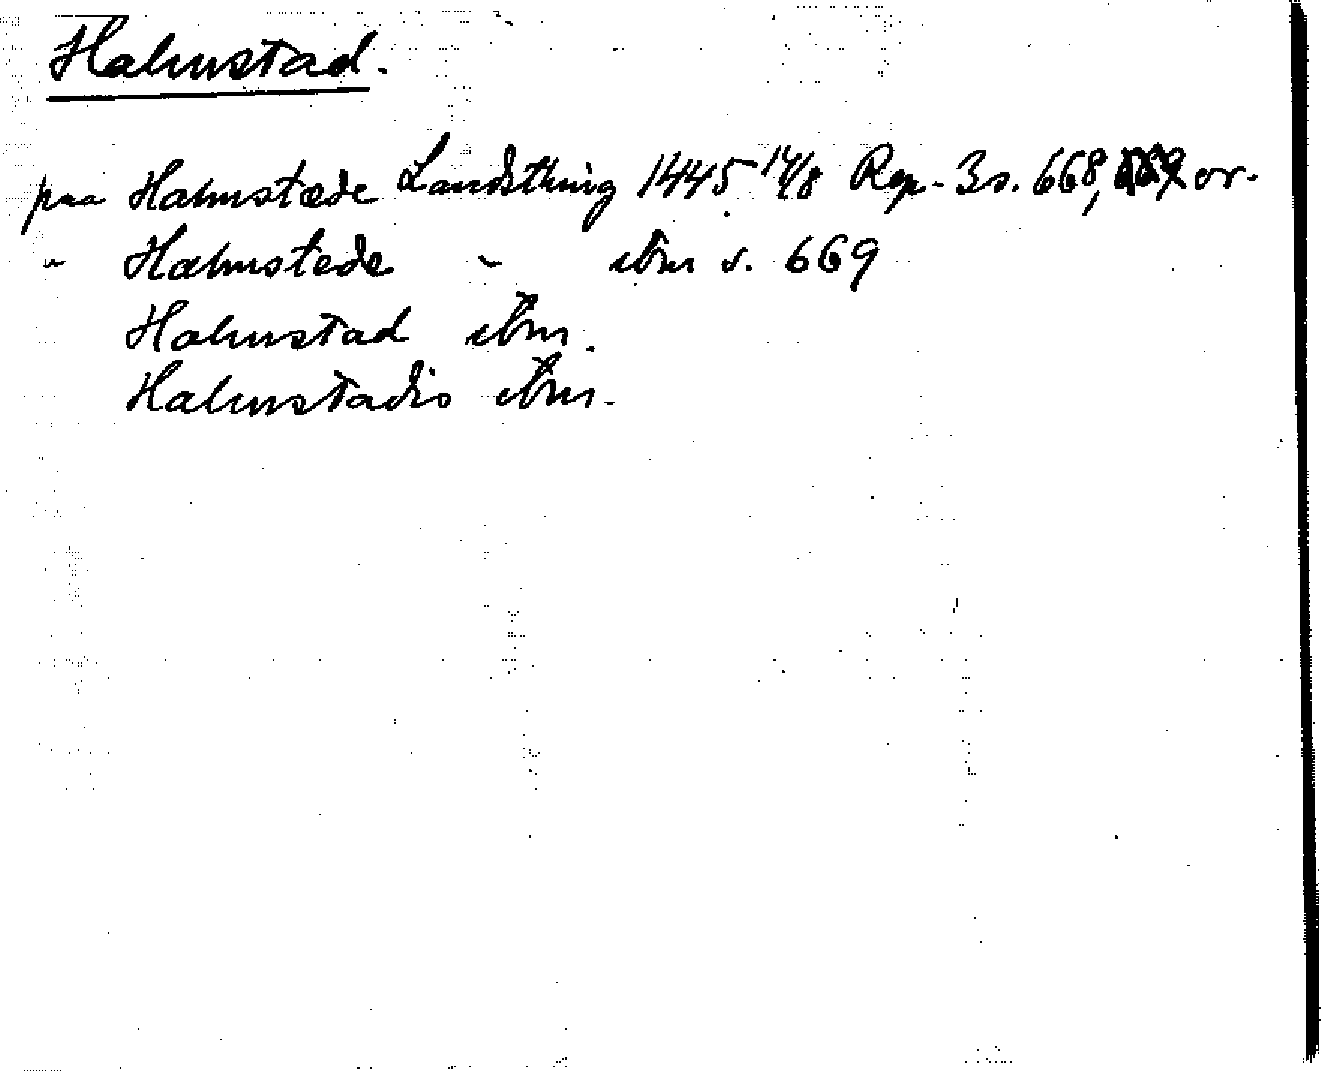 Halmstad.
paa Halmstæde Landsthing 1445 14/8 Rep. 3 s. 668, or.
" Halmstede " ibm s. 669
Halmstad ibm.
Halmstadis ibm.